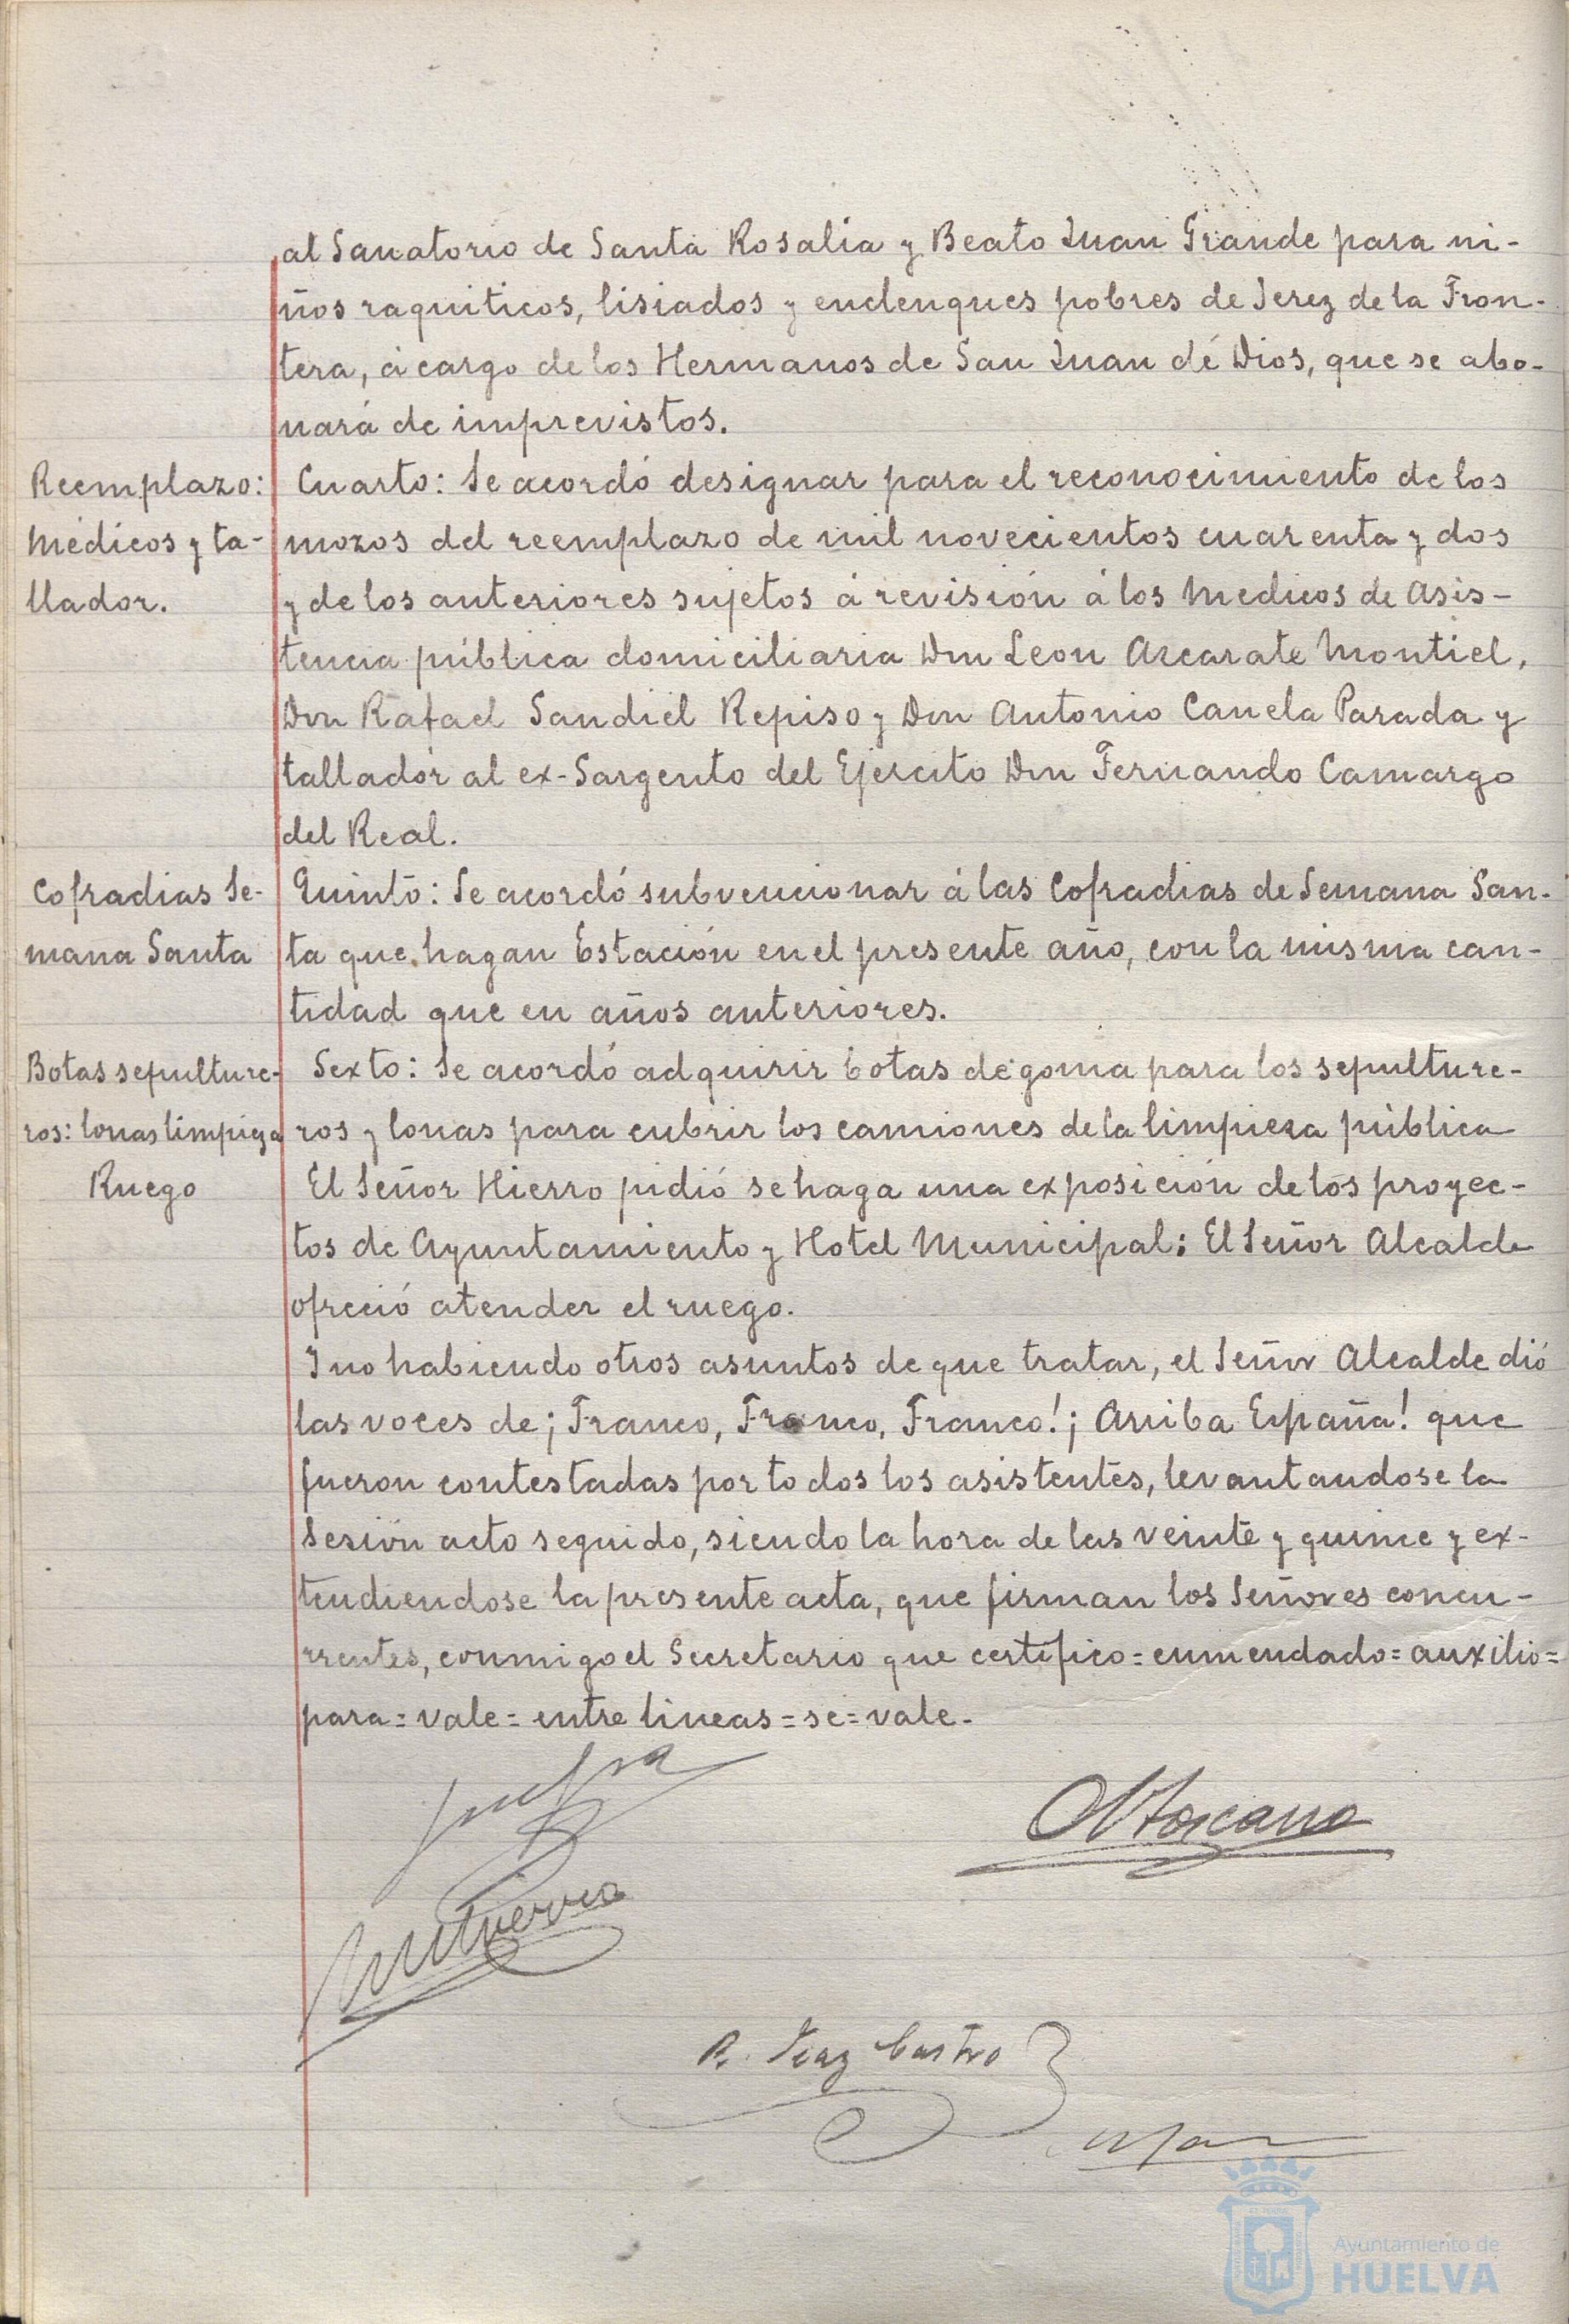 al Sanatorio de Santa Rosalia y Beato Juan Grande para ni-
ños raquiticos, lisiados y enclenques pobres de Jerez de la Fron-
tera, á cargo de los Hermanos de San Juan dé Dios, que se abo-
nará de imprevistos.
Reemplazo:
Médicos y ta-
llador.
Cuarto: Se acordó designar para el reconocimiento de los
mozos del reemplazo de mil novecientos cuarenta y dos
y de los anteriores sujetos á revisión á los Medicos de Asis-
tencia pública domiciliaria Don Leon Azcarate Montiel,
Don Rafael Sandiel Repiso y Don Antonio Canela Parada y
tallador al ex-Sargento del Ejercito Don Fernando Camargo
del Real.
Cofradias Se-
mana Santa
Quinto: Se acordó subvencionar á las Cofradias de Semana San-
ta que hagan Estación en el presente año, con la misma can-
tidad que en años anteriores.
Botas sepulture-
ros: lonas limpieza
Sexto: Se acordó adquirir botas de goma para los sepulture-
ros y lonas para cubrir los camiones de la limpieza pública
Ruego
El Señor Hierro pidió se haga una exposición de los proyec-
tos de Ayuntamiento y Hotel Municipal: El Señor Alcalde
ofreció atender el ruego.
Y no habiendo otros asuntos de que tratar, el Señor Alcalde dió
las voces de ¡Franco, Franco, Franco! ¡Arriba España! que
fueron contestadas por todos los asistentes, levantandose la
sesión acto seguido, siendo la hora de las veinte y quince y ex-
tendiendose la presente acta, que firman los Señores concu-
rrentes, conmigo el Secretario que certifico = enmendado = auxilio =
para = vale = entre lineas = se = vale -
R. Diaz Castro
Ayuntamiento de
HUELVA